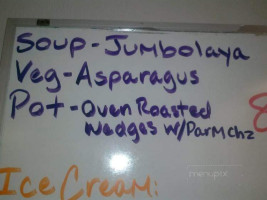 Soup-Jumbolaya
Veg-Asparagus
Pot-Oven Roasted
Wedges w/Parmchz
Ice Cream: